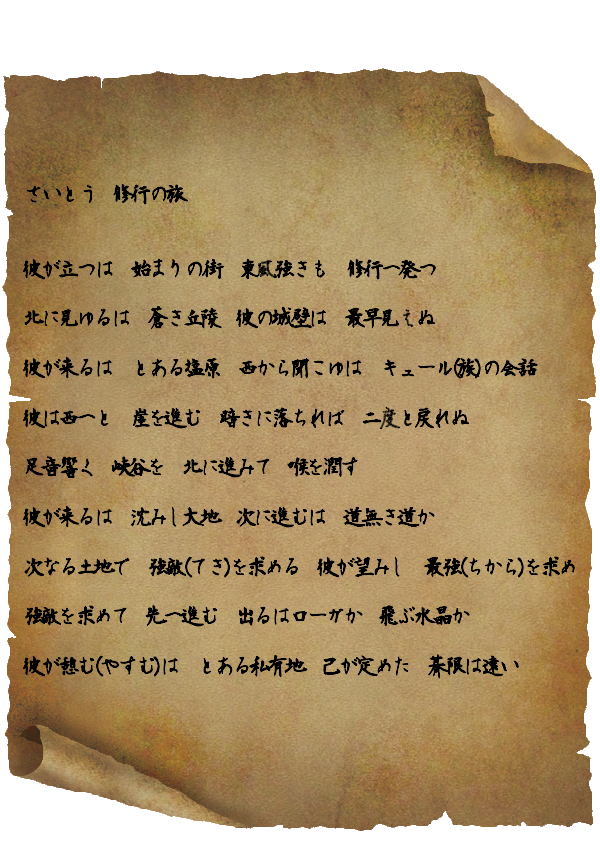 さいとう　修行の旅
彼が立つは　始まりの街　東風強きも　修行へ発つ
北に見ゆるは　蒼き丘陵　彼の城壁は　最早見えぬ
彼が来るは　とある塩原　西から聞こゆは　キュール(族)の会話
彼は西へと　崖を進む　暗きに落ちれば　二度と戻れぬ
足音響く　峡谷を　北に進みて　喉を潤す
彼が来るは　沈みし大地　次に進むは　道無き道か
次なる土地で　強敵(てき)を求める　彼が望みし　最強(ちから)を求め
強敵を求めて　先へ進む　出るはローガか　飛ぶ水晶か
彼が憩む(やすむ)は　とある私有地　己が定めた　幕限は遠い